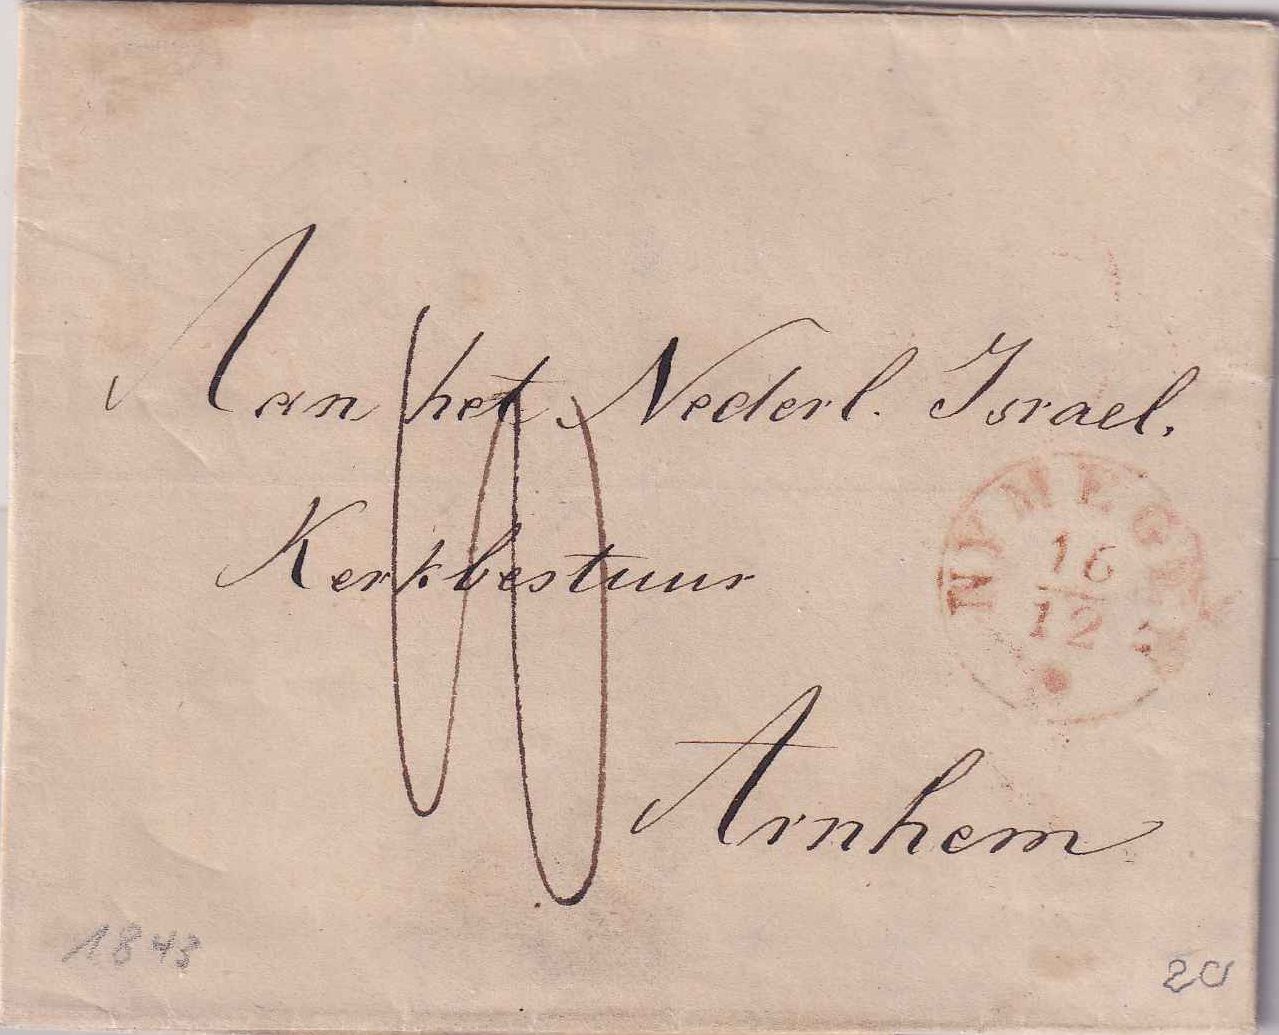 Aan het Nederl. Israel.
Kerkbestuur
Arnhem
NYMEGEN
16
12
1848
20